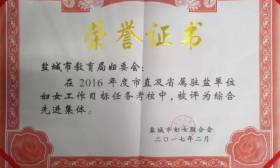 荣誉证书
盐城市教育局妇委会：
在2016年度市直及省属驻盐单位
妇女工作目标任务考核中，被评为综合
先进集体。
盐城市妇女联合会
二〇一七年二月